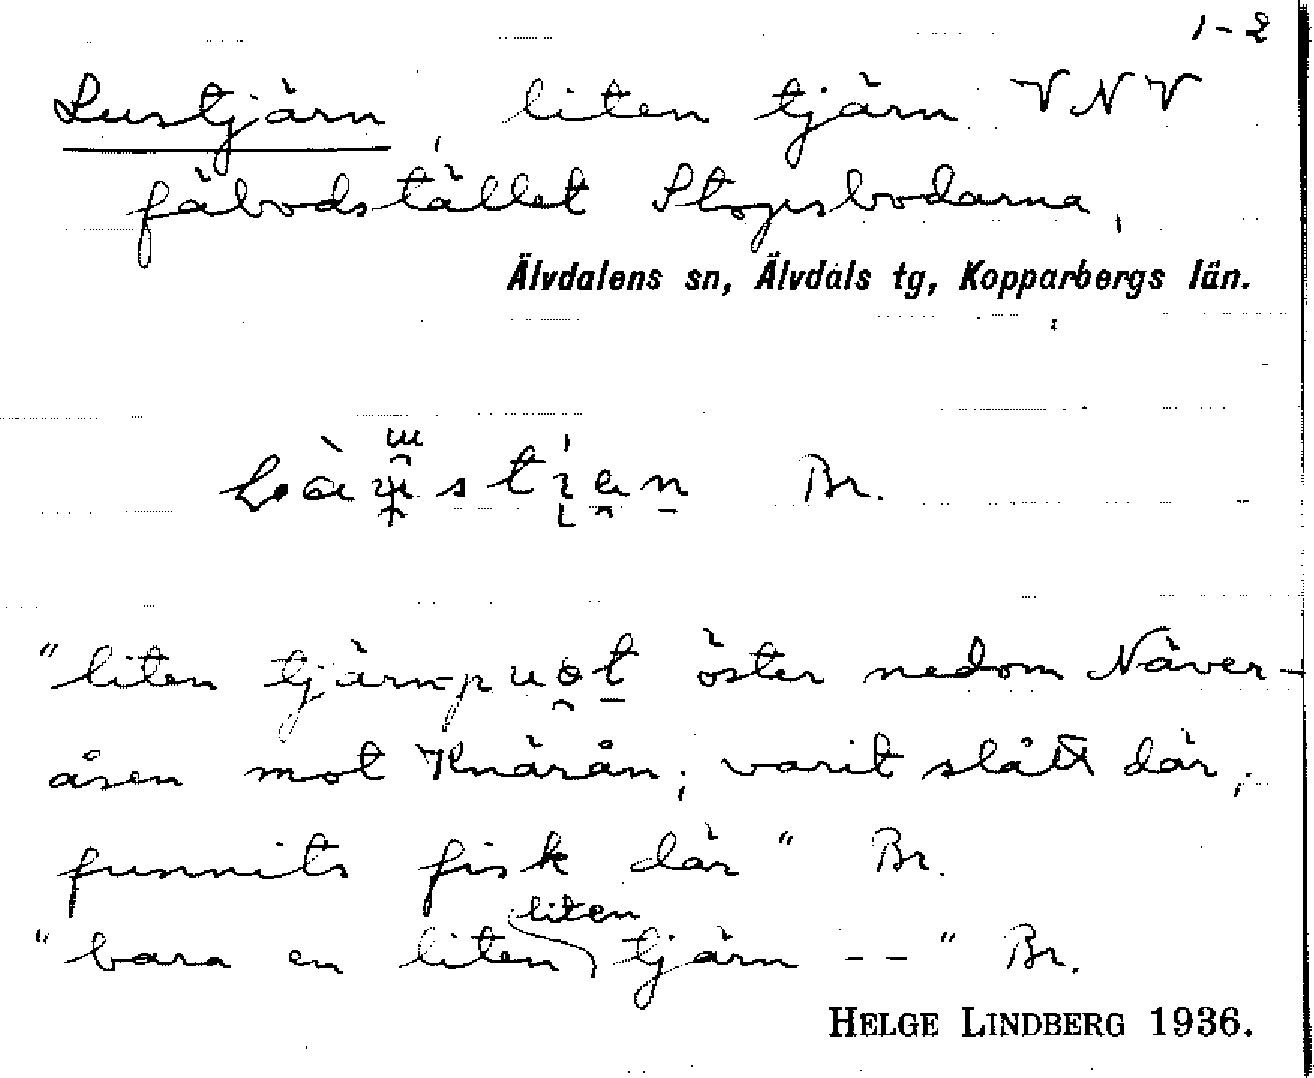 1-2
Lustjärn, liten tjärn VNV
fäbodstället Stopisbodarna,
Älvdalens sn, Älvdals tg, Kopparbergs län.
Br.
"liten tjärn-puo̯t̠ öster nedom Näver-
åsen mot Knärån; varit slått där,
funnits fisk där" Br.
"bara en liten liten tjärn -- " Br.
HELGE LINDBERG 1936.